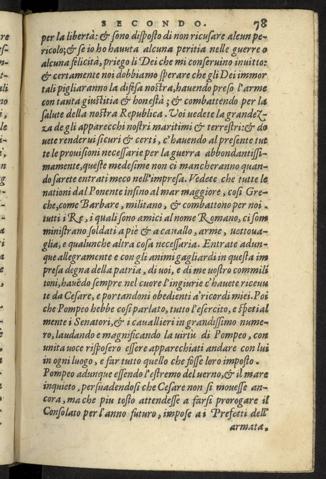 SECONDO. 78
per la libertà: & sono disposto di non ricusare alcun pe-
ricolo; & se io ho havuta alcuna peritia nelle guerre o
alcuna felicità, priego li Dei che mi conseruino inuitto:
& certamente noi dobbiamo sperare che gli Dei immor
tali pigliaranno la difesa nostra, hauendo preso l'arme
con tanta giustitia & honestà; & combattendo per la
salute della nostra Republica. Voi uedete la grandeZ-
za de gli apparecchi nostri maritimi & terrestri: & do
uete renderui sicuri & certi, c'hauendo al presente tut
te le prouisioni necessarie per la guerra abbondantissi-
mamente, queste medesime non ci mancheranno quan-
do sarete entrati meco nell'impresa. Vedete che tutte le
nationi dal Ponente insino al mar maggiore, cosi Gre-
che, come Barbare, militano, & combattono per noi.
tutti i Re, i quali sono amici al nome Romano, ci som
ministrano soldati a piè & a cauallo, arme, uettoua-
glia, e qualunche altra cosa necessaria. Entrate adun-
que allegramente e con gli animi gagliardi in questa im
presa degna della patria, di uoi, e di me uostro commili
toni, hauẽdo sempre nel cuore l'ingiurie c'hauete riceuu
te da Cesare, e portandoni obedienti a' ricordi miei. Poi
che Pompeo hebbe cosi parlato, tutto l'esercito, e spetial
mente i Senatori, & i cauallieri in grandissimo nume-
ro, laudando e magnificando la uirtu di Pompeo, con
unita uoce risposero essere apparechiati andare con lui
in ogni luogo, e far tutto quello che fosse loro imposto.
Pompeo adunque essendo l'estremo del uerno, & il mare
inquieto, persuadendosi che Cesare non si mouesse an-
cora, ma che piu tosto attendesse a farsi prorogare il
Consolato per l'anno futuro, impose a i Prefetti dell'
armata,